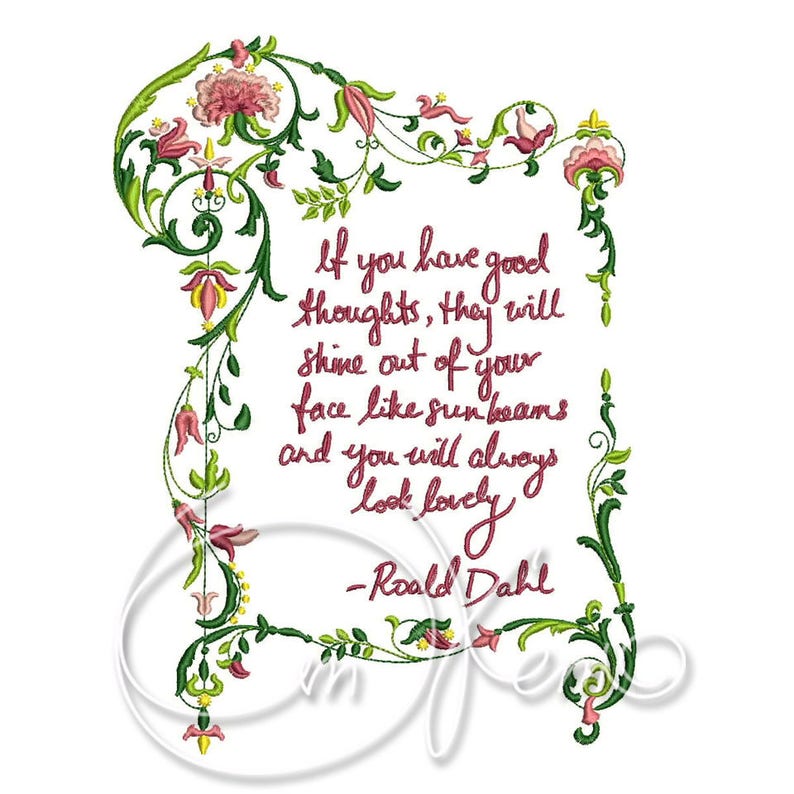 If you have good
thoughts, they will
shine out of your
face like sunbeams
and you will always
look lovely
-Roald Dahl